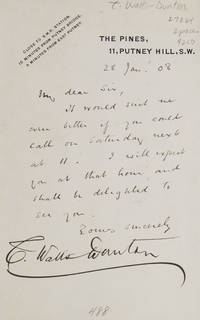 T. Watts-Dunton
CLOSE TO S.W.R. STATION.
15 MINUTES FROM PUTNEY BRIDGE.
5 MINUTES FROM EAST PUTNEY.
THE PINES,
11, PUTNEY HILL, S.W.
28 Jan: 08
My dear Sir,
It would suit me
even better if you could
call on Saturday next
at 11. I will expect
you at that hour, and
shall be delighted to
see you.
Yours sincerely
T. Watts Dunton
488